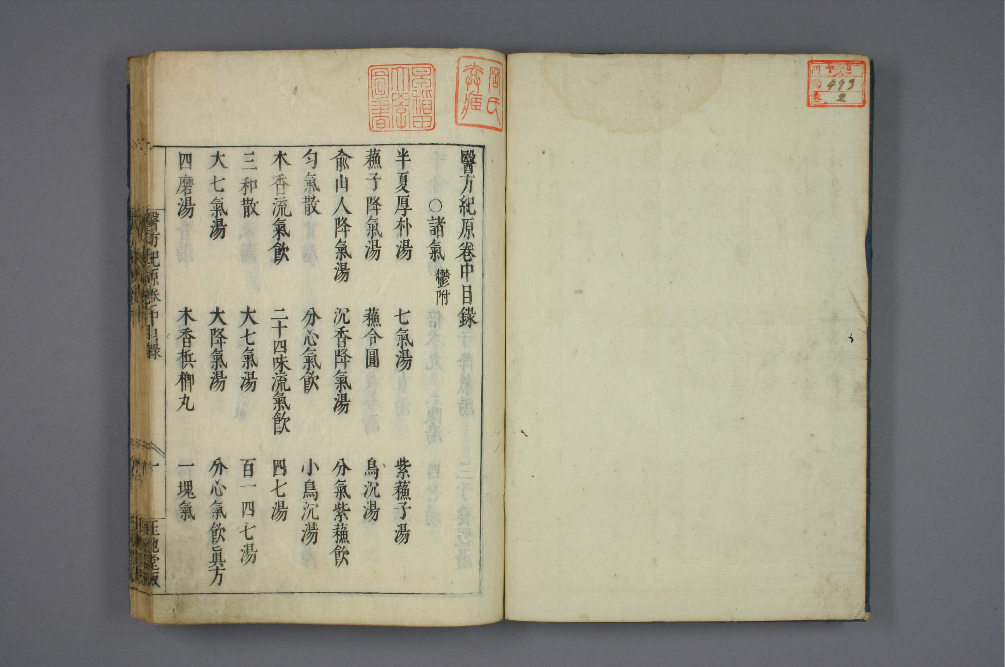 醫方紀原卷中目錄
○諸氣 鬱附
半夏厚朴湯 七氣湯 紫蘓子湯
蘓子降氣湯 蘓合圓 烏沉湯
俞山人降氣湯 沉香降氣湯 分氣紫蘓飲
勻氣散 分心氣飲 小烏沉湯
木香流氣飲 二十四味流氣飲 四七湯
三和散 大七氣湯 百一四七湯
大七氣湯 大降氣湯 分心氣飲眞方
四磨湯 木香梹榔丸 一塊氣
醫方紀原卷中目錄 一
早稻田大學圖書
門
493
卷 2